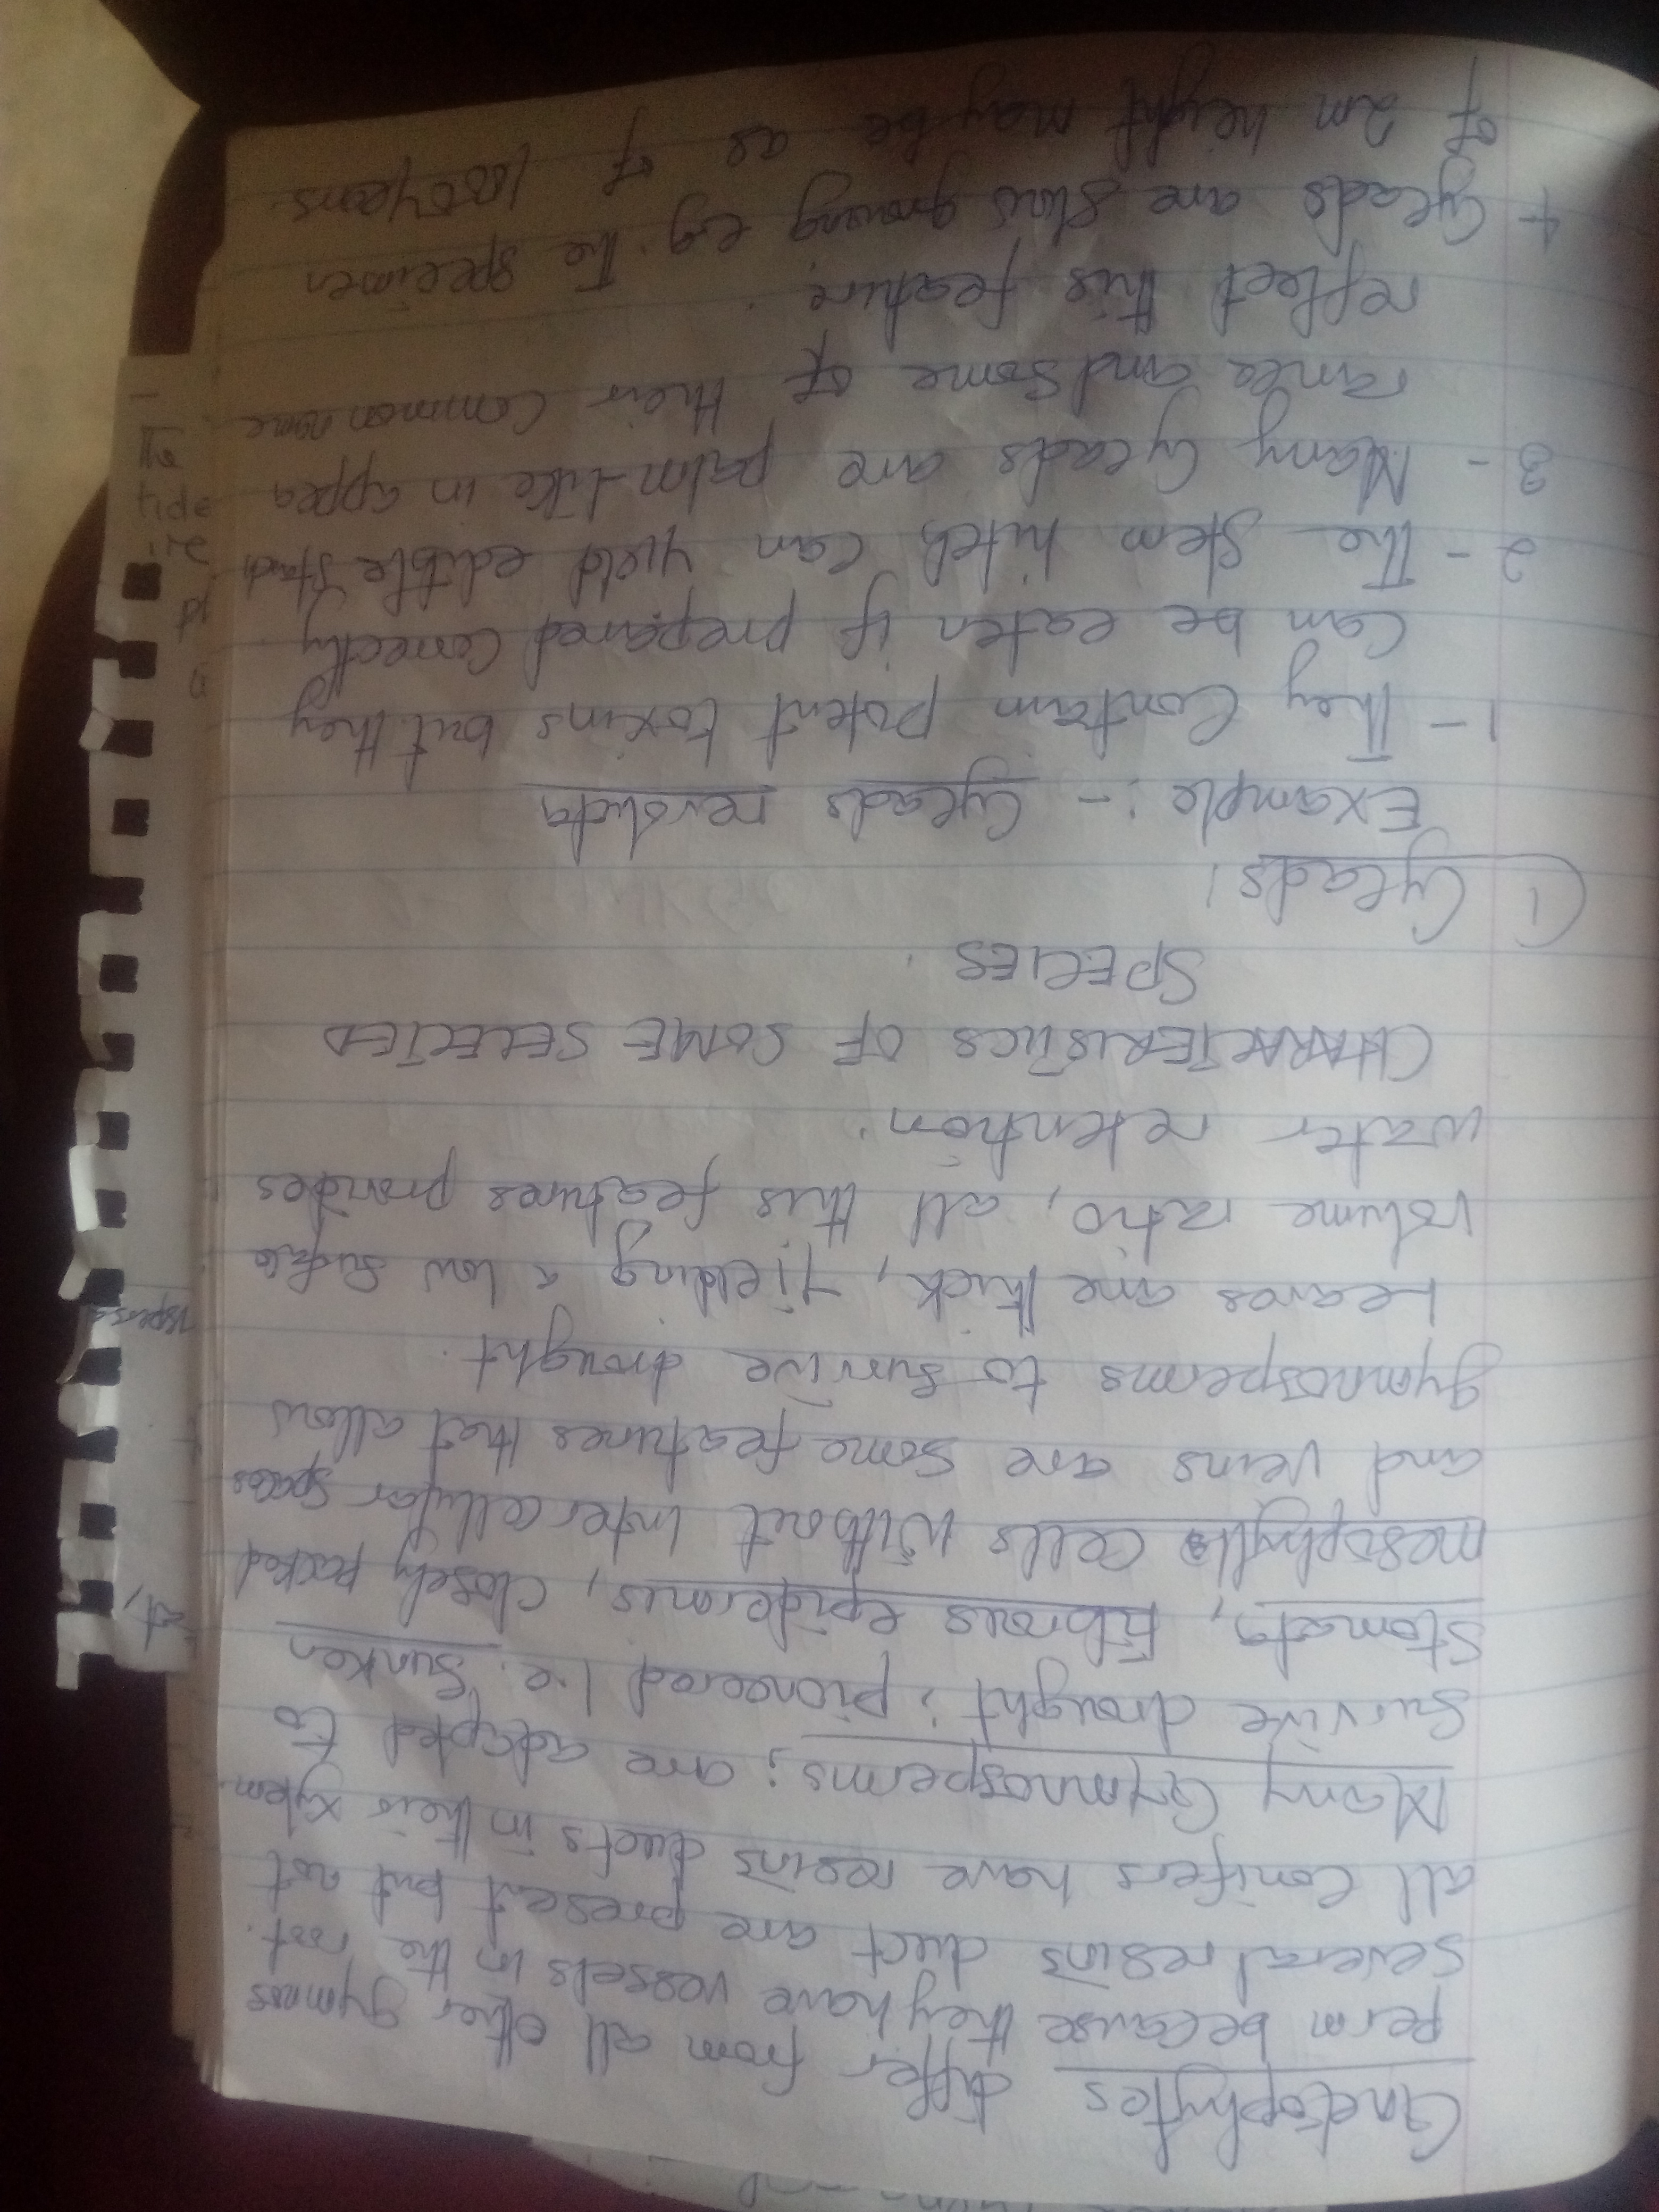 Gnetophytes differ from all other gymnos
perm because they have vessels in the root.
Several resins duct are present but not
all Conifers have resins ducts in their xylem.
Many Gymnosperms; are adapted to
Survive drought; pioneered i.e. Sunken
Stomata, Fibrous epidermis, closely packed
mesophylls cells without intercellular spaces
and veins are some features that allows
gymnosperms to survive drought.
Leaves are thick, Yielding a low surface
volume ratio, all this features provides
water retention.
CHARACTERISTICS OF SOME SELECTED
SPECIES.
① Cycads;
Example:- Cycads revoluta
1- They Contain potent toxins but they
Can be eaten if prepared correctly
2- The stem hitch can yield edible starch
3- Many Cycads are palm-like in appea
rance and some of their Common name
reflect this feature.
4 Cycads are slow growing eg. The specimen
of 2m height may be as of 1000 years.